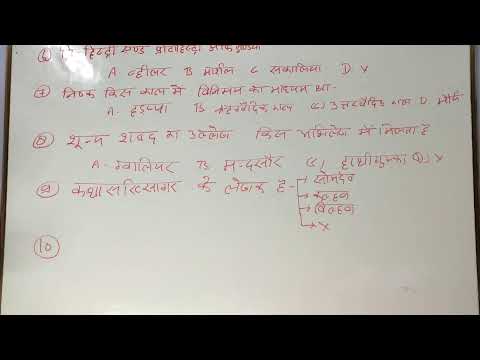 हिस्ट्री एण्ड प्रोटोहिस्ट्री ऑफ इण्डिया
A व्हीलर B मार्शल C सकालिया D. X
⑦ निष्क किस काल में विनिमय का माध्यम था-
A. हड़प्पा B ऋग्वैदिक काल (C) उत्तरवैदिक काल D. मौर्य
⑧ शून्य शब्द का उल्लेख किस अभिलेख में मिलता है
A- ग्वालियर B मन्दसौर (C) हाथीगुम्फा D) X
⑨ कथासरित्सागर के लेखक है -
सोमदेव
कल्हण
बिल्हण
X
⑩